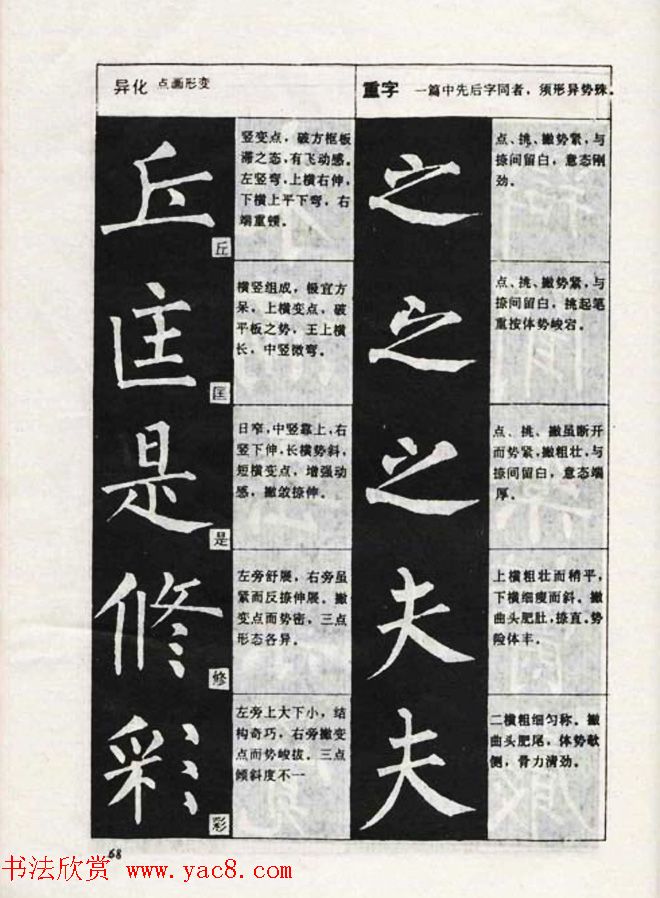 异化 点画形变
丘
丘
竖变点，破方框板
滞之态，有飞动感。
左竖弯，上横右伸，
下横上平下弯，右
端重顿。
匡
匡
横竖组成，极宜方
呆，上横变点，破
平板之势，王上横
长，中竖微弯。
是
是
日窄，中竖靠上，右
竖下伸，长横势斜，
短横变点，增强动
感，撇敛捺伸。
修
修
左旁舒展，右旁虽
紧而反捺伸展。撇
变点而势密，三点
形态各异。
彩
彩
左旁上大下小，结
构奇巧，右旁撇变
点而势峻拔。三点
倾斜度不一
重字 一篇中先后字同者，须形异势殊。
之
点、挑、撇势紧，与
捺间留白，意态刚
劲。
之
点、挑、撇势紧，与
捺间留白，挑起笔
重按体势峻宕。
之
点、挑、撇虽断开
而势紧，撇粗壮，与
捺间留白，意态端
厚。
夫
上横粗壮而稍平，
下横细瘦而斜。撇
曲头肥肚，捺直。势
险体丰。
夫
二横粗细匀称。撇
曲头肥尾，体势欹
侧，骨力清劲。
68
书法欣赏 www.yac8.com